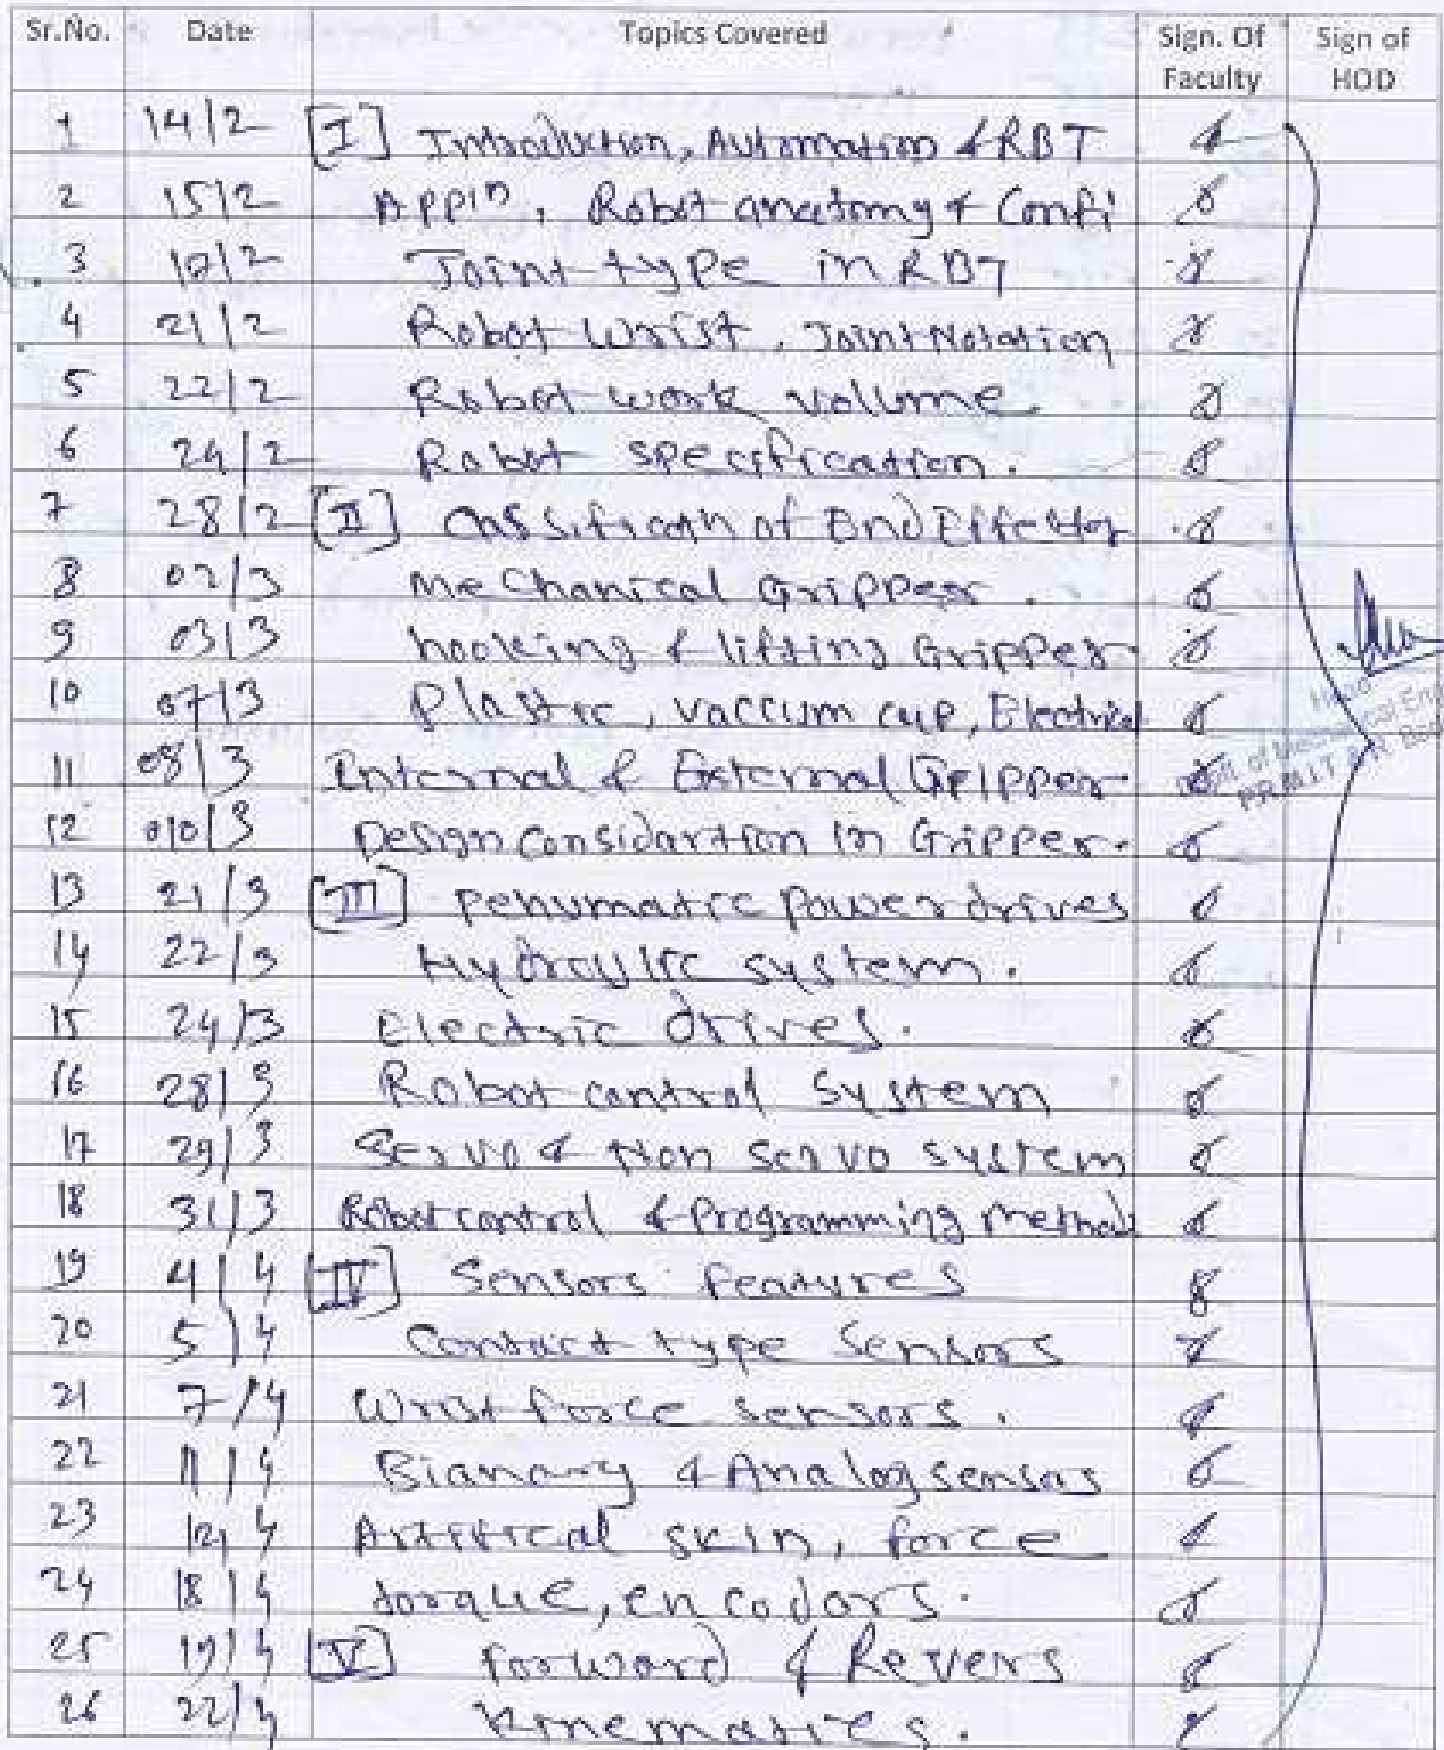 Sr.No. Date Topics Covered Sign. Of Faculty Sign of HOD
1 14/2 [I] Introduction, Automation & RBT
2 15/2 Appln, Robot anatomy & Confi
3 17/2 Joint type in RBT
4 21/2 Robot Wrist, Joint Notation
5 22/2 Robot work vollume.
6 24/2 Robot specification.
7 28/2 [II] of End Effector
8 02/3 Mechanical Gripper.
9 03/3 hooking & lifting Gripper
10 07/3 Plastic, vaccum cup, Electrical
11 08/3 Internal & External Gripper
12 010/3 Design Considartion in Gripper.
13 21/3 [III] Penumatic Power drives
14 22/3 Hydraulic system.
15 24/3 Electric drives.
16 28/3 Robot control System
17 29/3 Servo & Non Servo system
18 31/3 Robot control & Programming Method
19 4/4 [IV] Sensors Features
20 5/4 Contact type Sensors
21 7/4 Wrist force sensors.
22 11/4 Bianary & Analog sensors
23 12/4 Artifical skin, force
24 18/4 torque, encodors.
25 19/4 [V] Forword & Revers
26 22/4 Kinematics.
Head
of Mechanical Eng